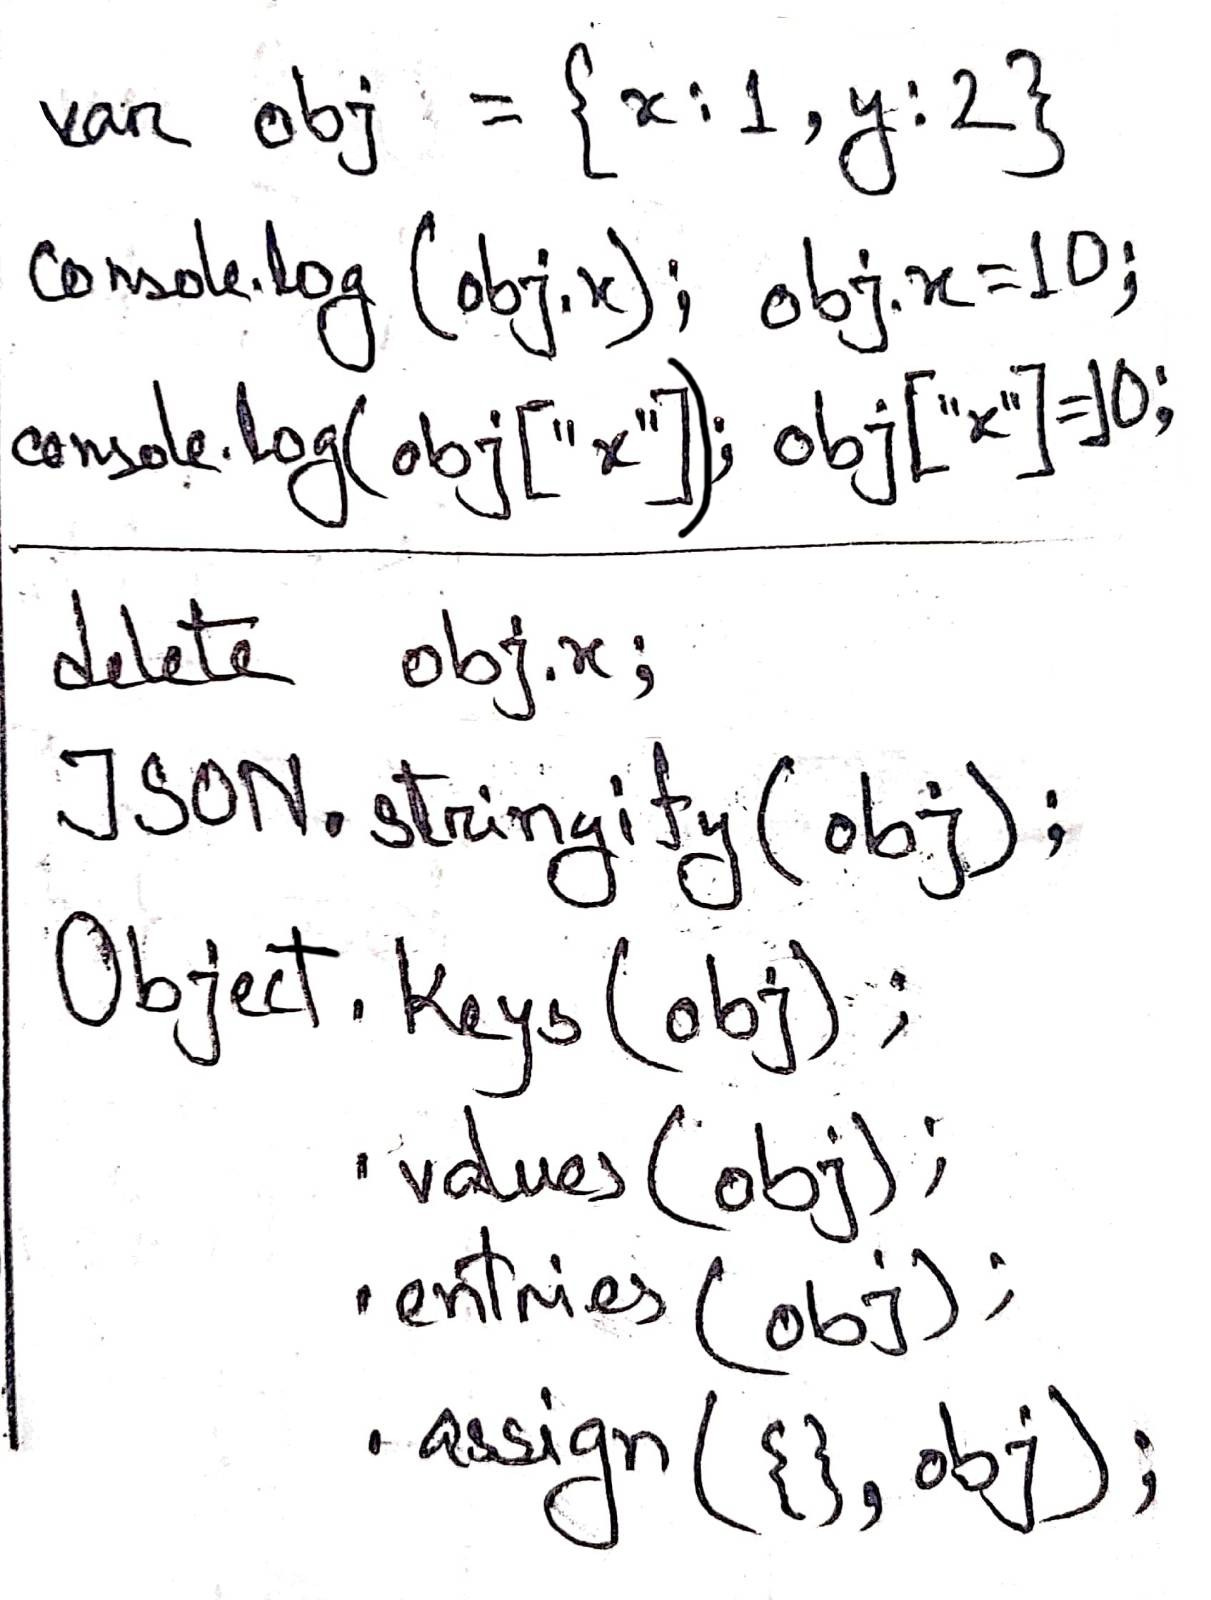 var obj = {x:1, y:2}
console.log (obj.x); obj.x=10;
console.log(obj["x"]); obj["x"]=10;
delete obj.x;
JSON.stringify(obj);
Object.keys(obj);
.values(obj);
.entries(obj);
.assign({}, obj);